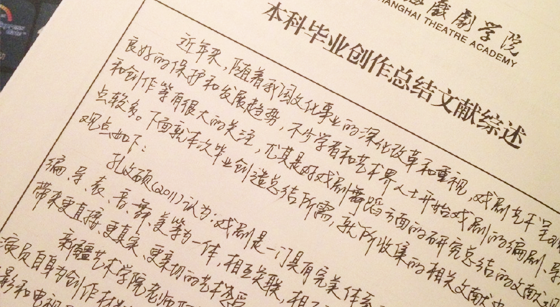 上海戲劇学院
SHANGHAI THEATRE ACADEMY
本科毕业创作总结文献综述
近年来，随着我国文化事业的深化改革和重视，戏剧艺术呈现
良好的保护和发展趋势，不少学者和艺术界人士开始戏剧的编剧、
和创作等有很大的关注，尤其是对戏剧舞蹈方面的研究总结的文献
点较多。下面就本次毕业创造总结所需，我所收集的相关文献
观点如下：
孔政硕（2011）认为：戏剧是一门具有完美体系
编、导、表、音、舞、美等为一体，相互关联，相
带来更直接、更真实、更亲切的艺术感受
新疆艺术学院老师
演员自身创作
影和电视